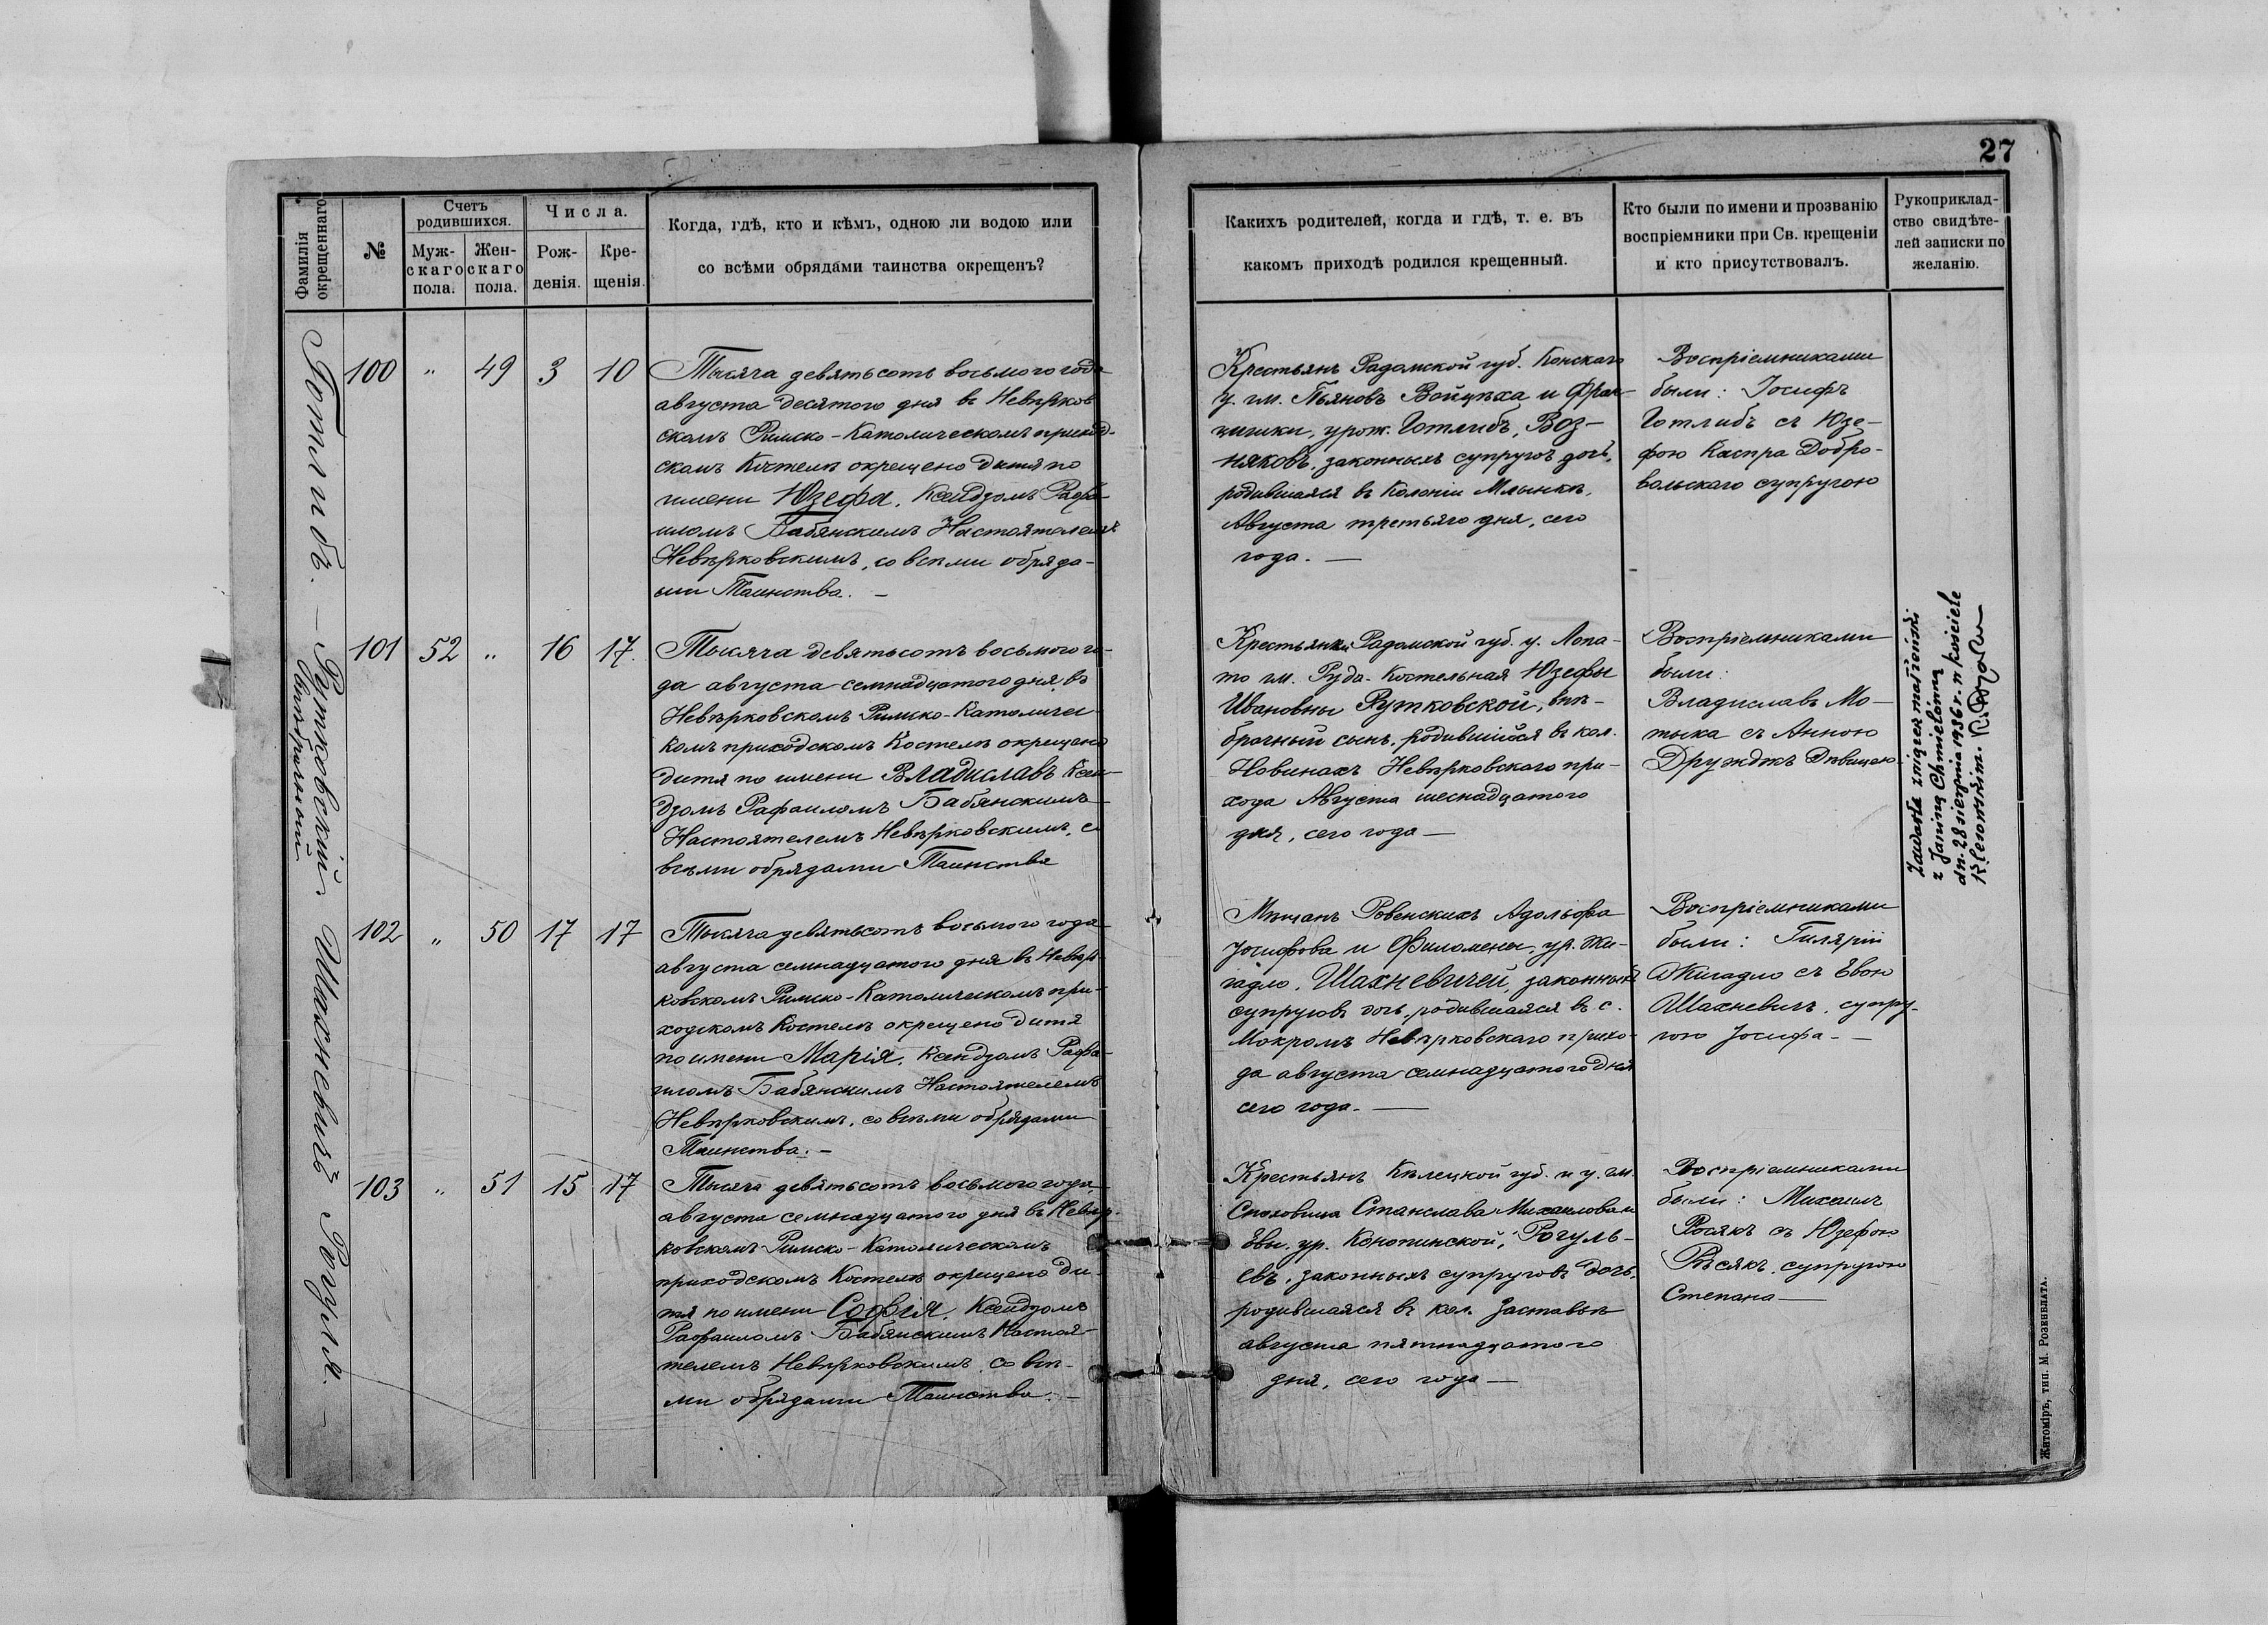 27
Фамилія окрещеннаго
№
Счетъ родившихся.
Мужскаго пола.
Женскаго пола.
Числа.
Рожденія.
Крещенія.
Когда, гдѣ, кто и кѣмъ, одною ли водою или
со всѣми обрядами таинства окрещенъ?
Какихъ родителей, когда и гдѣ, т. е. въ
какомъ приходѣ родился крещенный.
Кто были по имени и прозванію
воспріемники при Св. крещеніи
и кто присутствовалъ.
Рукоприклад-
ство свидѣте-
лей записки по
желанію.
Готлибъ. –
100 " 49 3 10
Тысяча девятьсотъ восьмого года
августа десятого дня въ Невѣрков
скомъ Римско-Католическомъ приход-
скомъ Костелѣ окрещено дитя по
имени Юзефа. Ксендзомъ Рафа-
иломъ Бабянскимъ Настоятелемъ
Невѣрковскимъ, со всѣми обряда-
ми Таинства. –
Крестьянъ Радомской губ. Конскаго
у. гм. Пьяновъ Войцѣха и Фран-
цишки, урож. Готлибъ, Воз-
няковъ, законныхъ супруговъ дочь,
родившаяся въ Колоніи Млынкъ,
Августа третьяго дня, сего
года. –
Воспріемниками
были: Іосифъ
Готлибъ съ Юзе-
фою Каспра Добро-
вольскаго супругою
Рутковскій
внѣбрачный
101 52 " 16 17.
Тысяча девятьсотъ восьмого го-
да августа семнадцатого дня, въ
Невѣрковскомъ Римско-Католичес-
комъ приходскомъ Костелѣ окрещено
дитя по имени Владиславъ Ксен-
дзомъ Рафаиломъ Бабянскимъ
Настоятелемъ Невѣрковскимъ, со
всѣми обрядами Таинства
Крестьянки Радомской губ. у. Лопа-
то гм. Руда-Костельная Юзефы
Ивановны Рутковской, внѣ-
брачный сынъ, родившійся въ кол.
Новинахъ Невѣрковскаго при-
хода Августа шеснадцатого
дня, сего года –
Воспріемниками
были:
Владиславъ Мо-
тыка съ Анною
Дружджъ Дѣвицею
z Janiną Chmielówną
dn. 28 sierpnia 1936 r. w kościele
Шахневичъ
102 " 50 17 17
Тысяча девятьсотъ восьмого года
августа семнадцатого дня въ Невѣр-
ковскомъ Римско-Католическомъ при-
ходскомъ Костелѣ окрещено дитя
по имени Марія. Ксендзомъ Рафа-
иломъ Бабянскимъ Настоятелемъ
Невѣрковскимъ, со всѣми обрядами
Таинства. –
Мѣщанъ Ровенскихъ Адольфа
Іосифова и Филомены, ур. Жи-
гадло, Шахневичей, законныхъ
супруговъ дочь, родившаяся въ с.
Мокромъ Невѣрковскаго прихо-
да августа семнадцатого дня
сего года. –
Воспріемниками
были: Гилярій
Жигадло съ Евою
Шахневичъ, супру-
гою Іосифа. –
Рогуля. –
103 " 51 15 17
Тысяча девятьсотъ восьмого года
августа семнадцатого дня въ Невѣр-
ковскомъ Римско-Католическомъ
приходскомъ Костелѣ окрещено ди-
тя по имени Софія. Ксендзомъ
Рафаиломъ Бабянскимъ Настоя-
телемъ Невѣрковскимъ, со всѣ-
ми обрядами Таинства. –
Крестьянъ Кѣлецкой губ. и у. гм.
Станслава Михаилова и
Евы, ур. Конопинской, Рогуль-
евъ, законныхъ супруговъ дочь,
родившаяся въ кол. Заставье
августа пятнадцатого
дня, сего года –
Воспріемниками
были: Михаилъ
Росякъ съ Юзефою
Росякъ, супругою
Степана –
Житоміръ, тип. М. Розенблата.